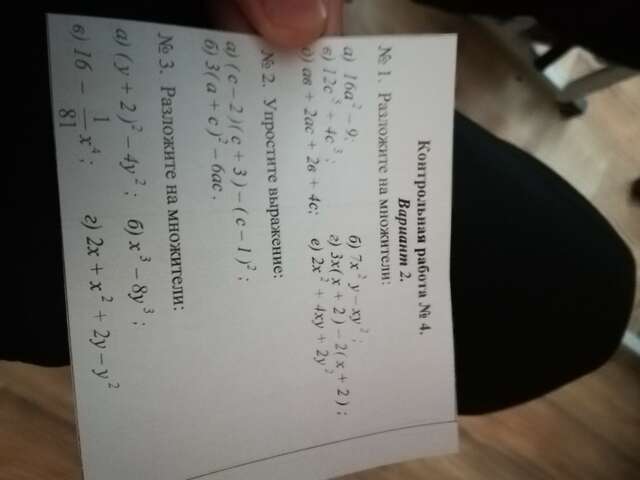 Контрольная работа № 4.
Вариант 2.
№ 1. Разложите на множители:
а) 16a² – 9; б) 7x²y – xy²;
в) 12c⁵ + 4c³; г) 3x(x + 2) – 2(x + 2);
д) ав + 2ac + 2в + 4c; е) 2x² + 4xy + 2y²
№ 2. Упростите выражение:
а) (c – 2)(c + 3) – (c – 1)²;
б) 3(a + c)² – 6ac.
№ 3. Разложите на множители:
а) (y + 2)² – 4y²; б) x³ – 8y³;
в) 16 – 1/81 x⁴; г) 2x + x² + 2y – y²